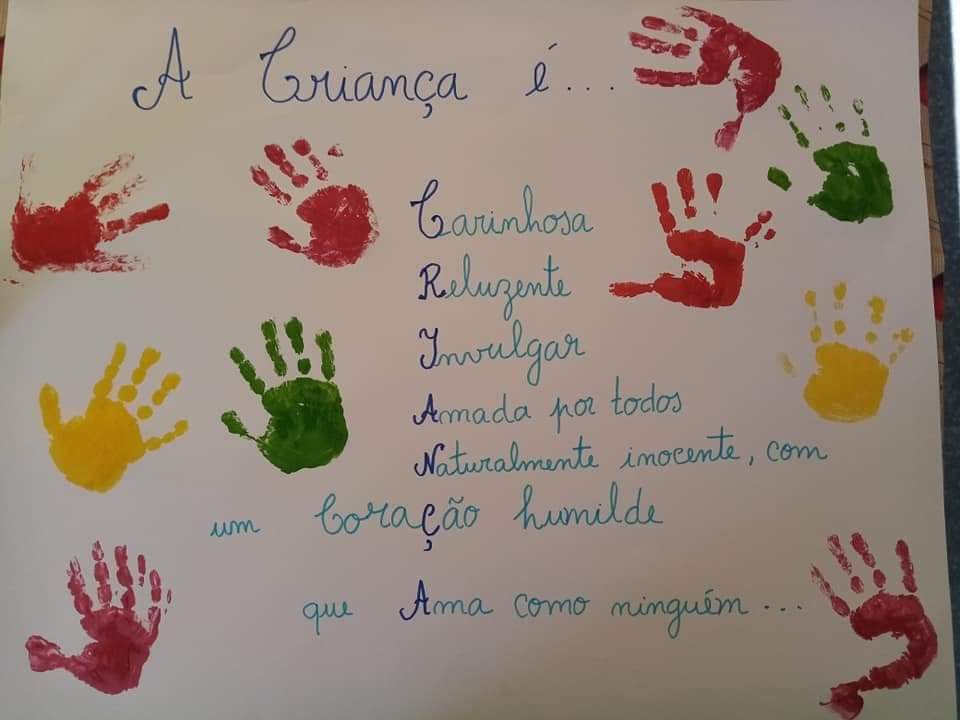 A Criança é...
Carinhosa
Reluzente
Invulgar
Amada por todos
Naturalmente inocente, com
um Coração humilde
que Ama como ninguém...